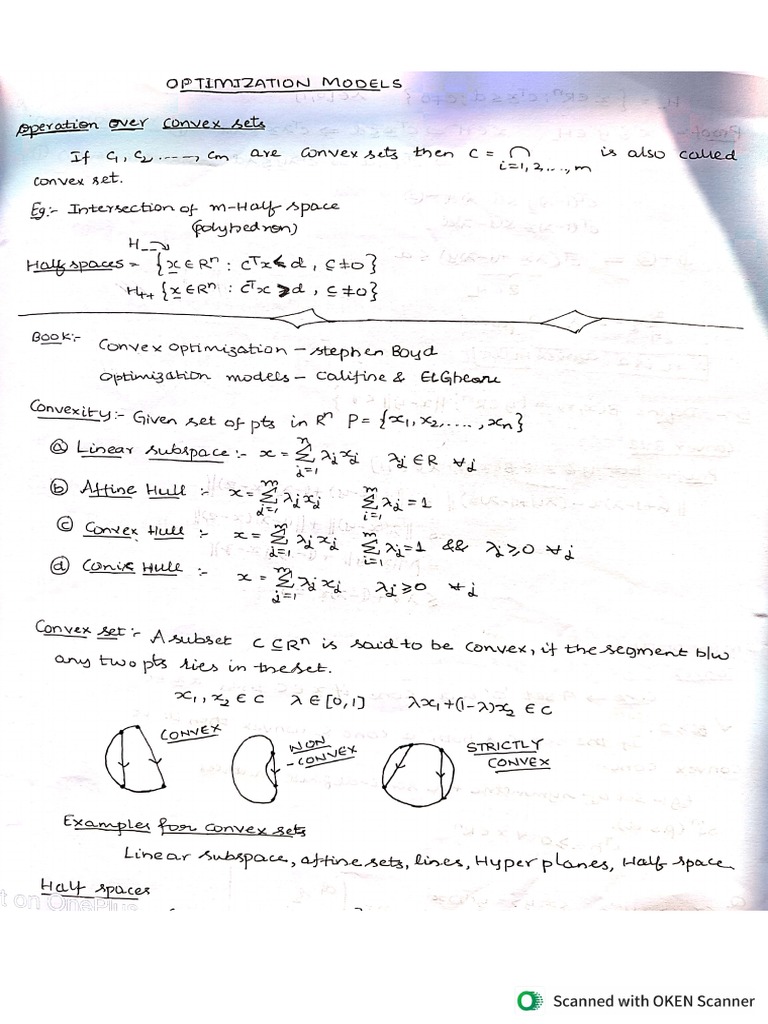 OPTIMIZATION MODELS
Operation over convex sets
If C₁, C₂ ----, Cm are convex sets then C = ∩ is also called
i=1,2,..,m
convex set.
Eg:- Intersection of m-Half space
(polyhedron)
H__
Half spaces = {x ∈ Rⁿ : cᵀx < d, c ≠ 0}
H++ {x ∈ Rⁿ : cᵀx ≥ d, c ≠ 0}
Book:- Convex optimization – Stephen Boyd
Optimization models – Califine & ElGhcaoui
Convexity:- Given set of pts in Rⁿ P = {x₁, x₂, ...., xn}
ⓐ Linear subspace:- x = Σⁿj=1 λj xj λj ∈ R ∀j
ⓑ Affine Hull :- x = Σᵐj=1 λj xj Σᵐi=1 λj = 1
ⓒ Convex Hull :- x = Σᵐj=1 λj xj Σᵐi=1 λj = 1 && λj ≥ 0 ∀j
ⓓ Conix Hull :- x = Σᵐj=1 λj xj λj ≥ 0 ∀j
Convex set:- A subset C ⊆ Rⁿ is said to be convex, if the segment b/w
any two pts lies in the set.
x₁, x₂ ∈ C λ ∈ [0,1] λx₁+(1-λ)x₂ ∈ C
CONVEX
NON
-CONVEX
STRICTLY
CONVEX
Examples for convex sets
Linear subspace, affine sets, lines, Hyper planes, Half space
Half spaces
t on OnePlus
Scanned with OKEN Scanner